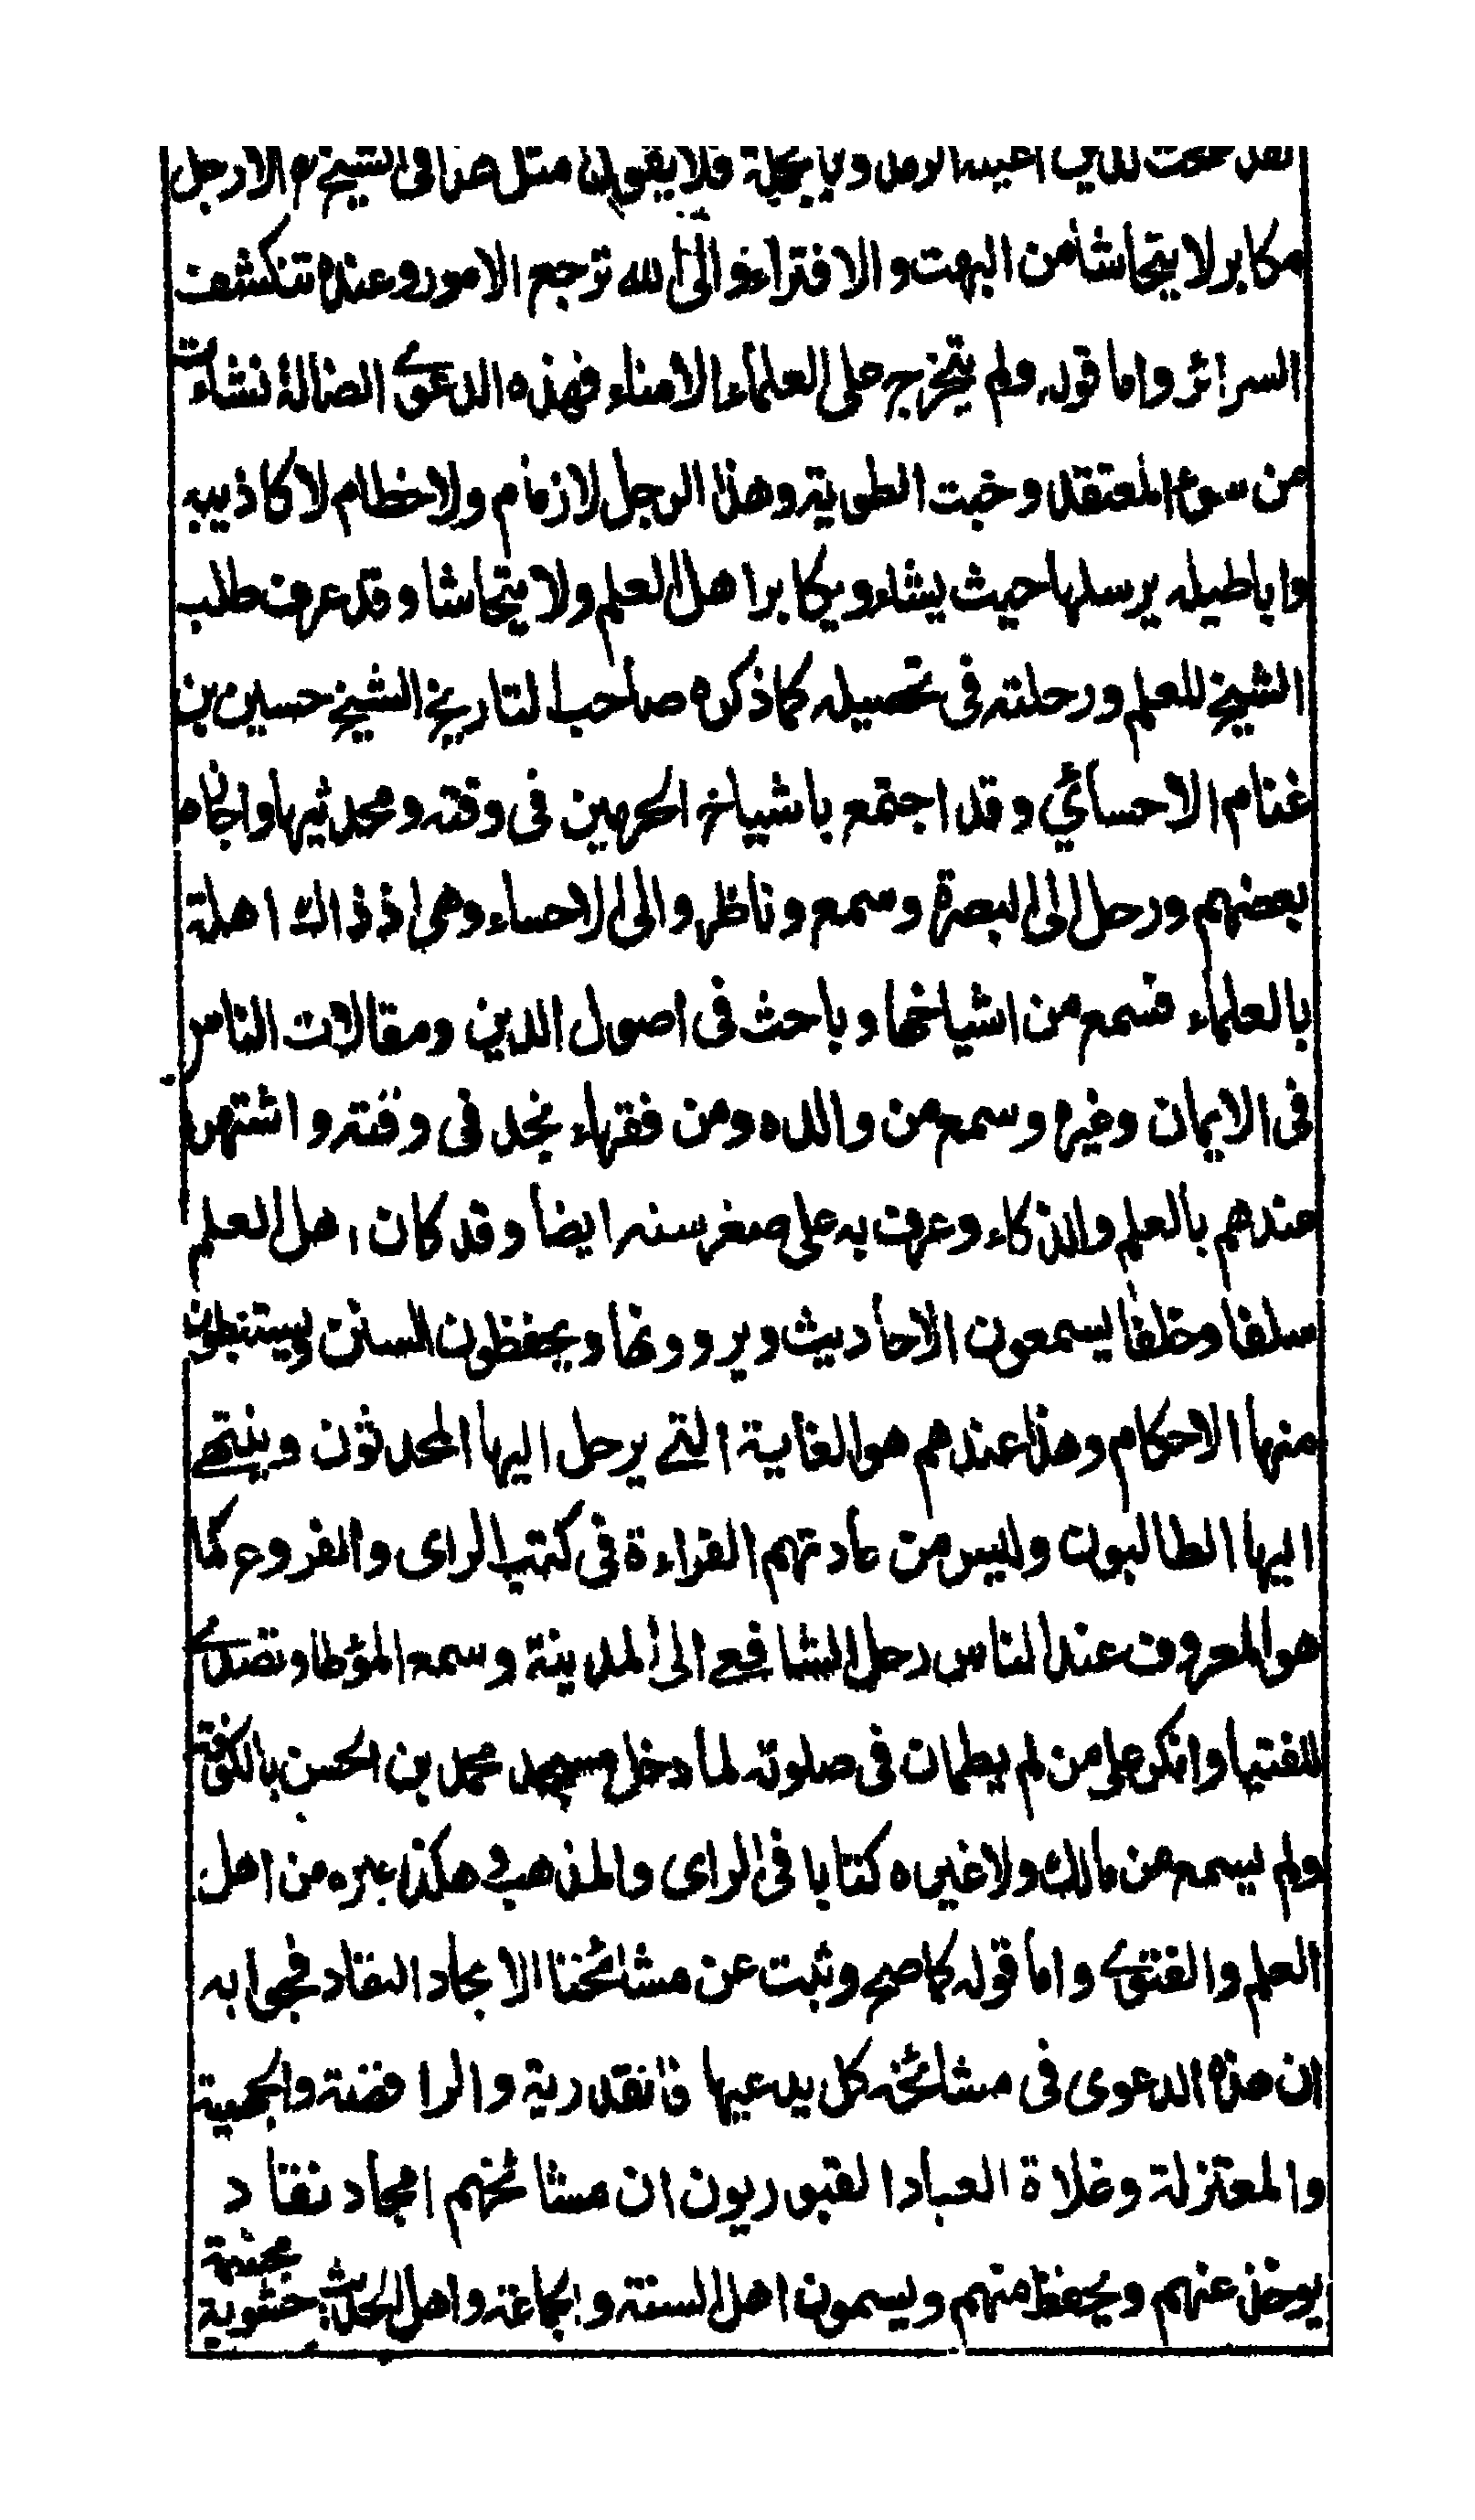 وبالجملة فلا يقول مثل هذا في الشيخ الا رجل
مكابر لا يتحاشا من البهت والافتراء والى الله ترجع الامور وعنده تنكشف
السرائر واما قوله ولم يتخرج على العلماء الامناء فهذه الدعوى الضالة نشات
من سوء المعتقد وخبث الطوية وهذا الرجل لا زمام ولا خطام لاكاذيبه
واباطيله يرسلها حيث يشاء ويكابر اهل العلم ولا يتحاشا وقد عرف طلب
الشيخ للعلم ورحلته في تحصيله كما ذكره صاحب التاريخ الشيخ حسين بن
غنام الاحسائي وقد اجتمع باشياخ الحرمين في وقته ومحدثيها واجازه
بعضهم ورحل الى البصرة وسمع وناظر والى الاحساء وهي اذ ذاك اهلة
بالعلماء فسمع من اشياخها وباحث في اصول الدين ومقالات الناس
في الايمان وغيره وسمع من والده ومن فقهاء نجد في وقته واشتهر
عندهم بالعلم والذكاء وعرف به على صغر سنه ايضا وقد كان اهل العلم
سلفا وخلفا يسمعون الاحاديث ويروونها ويحفظون السنن ويستنبطون
منها الاحكام وهذا عندهم هو الغاية التي يرحل اليها المحدثون وينتهي
اليها الطالبون وليس من عادتهم القراءة في كتب الراى والفروع كما
هو المعروف عند الناس رحل الشافعي الى المدينة وسمع المؤطا وتصدى
للفتيا وانكر على من لم يطمان في صلوته لما دخل مسجد محمد بن الحسن بالكوفة
ولم يسمع من مالك ولا غيره كتابا في الراى والمذهب هكذا غيره من اهل
العلم والفتوى واما قوله كما صح وثبت عن مشائخنا الامجاد النقاد فجوابه
ان هذه الدعوى في مشائخه كل يدعيها فالقدرية والرافضة والجهمية
والمعتزلة وغلاة العباد القبوريون ان مشائخهم امجاد نقاد
يوخذ عنهم ويحفظ منهم ويسمون اهل السنة والجماعة واهل الحديث حشوية
مجسمة